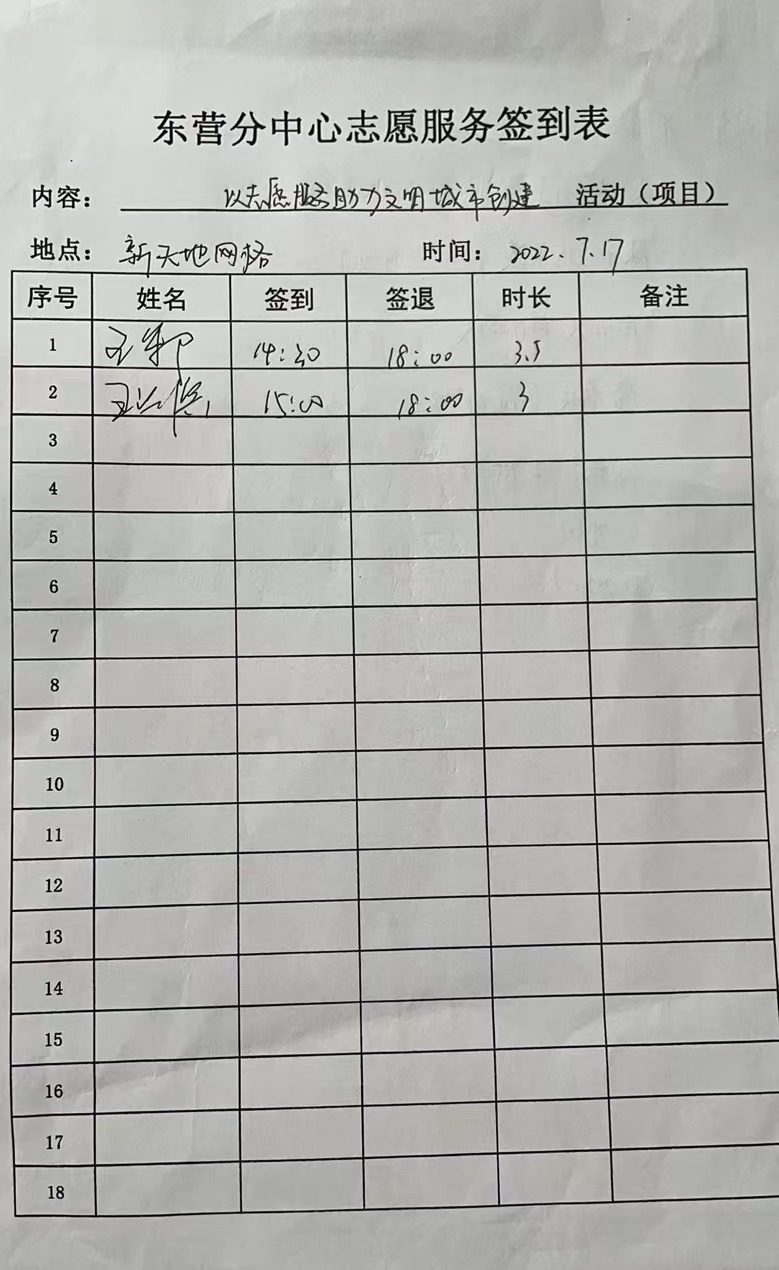 东营分中心志愿服务签到表
内容： 以志愿服务助力文明城市创建 活动（项目）
地点： 新天地网格 时间： 2022.7.17
序号 姓名 签到 签退 时长 备注
1 王 14:30 18:00 3.5
2 王 15:00 18:00 3
3
4
5
6
7
8
9
10
11
12
13
14
15
16
17
18